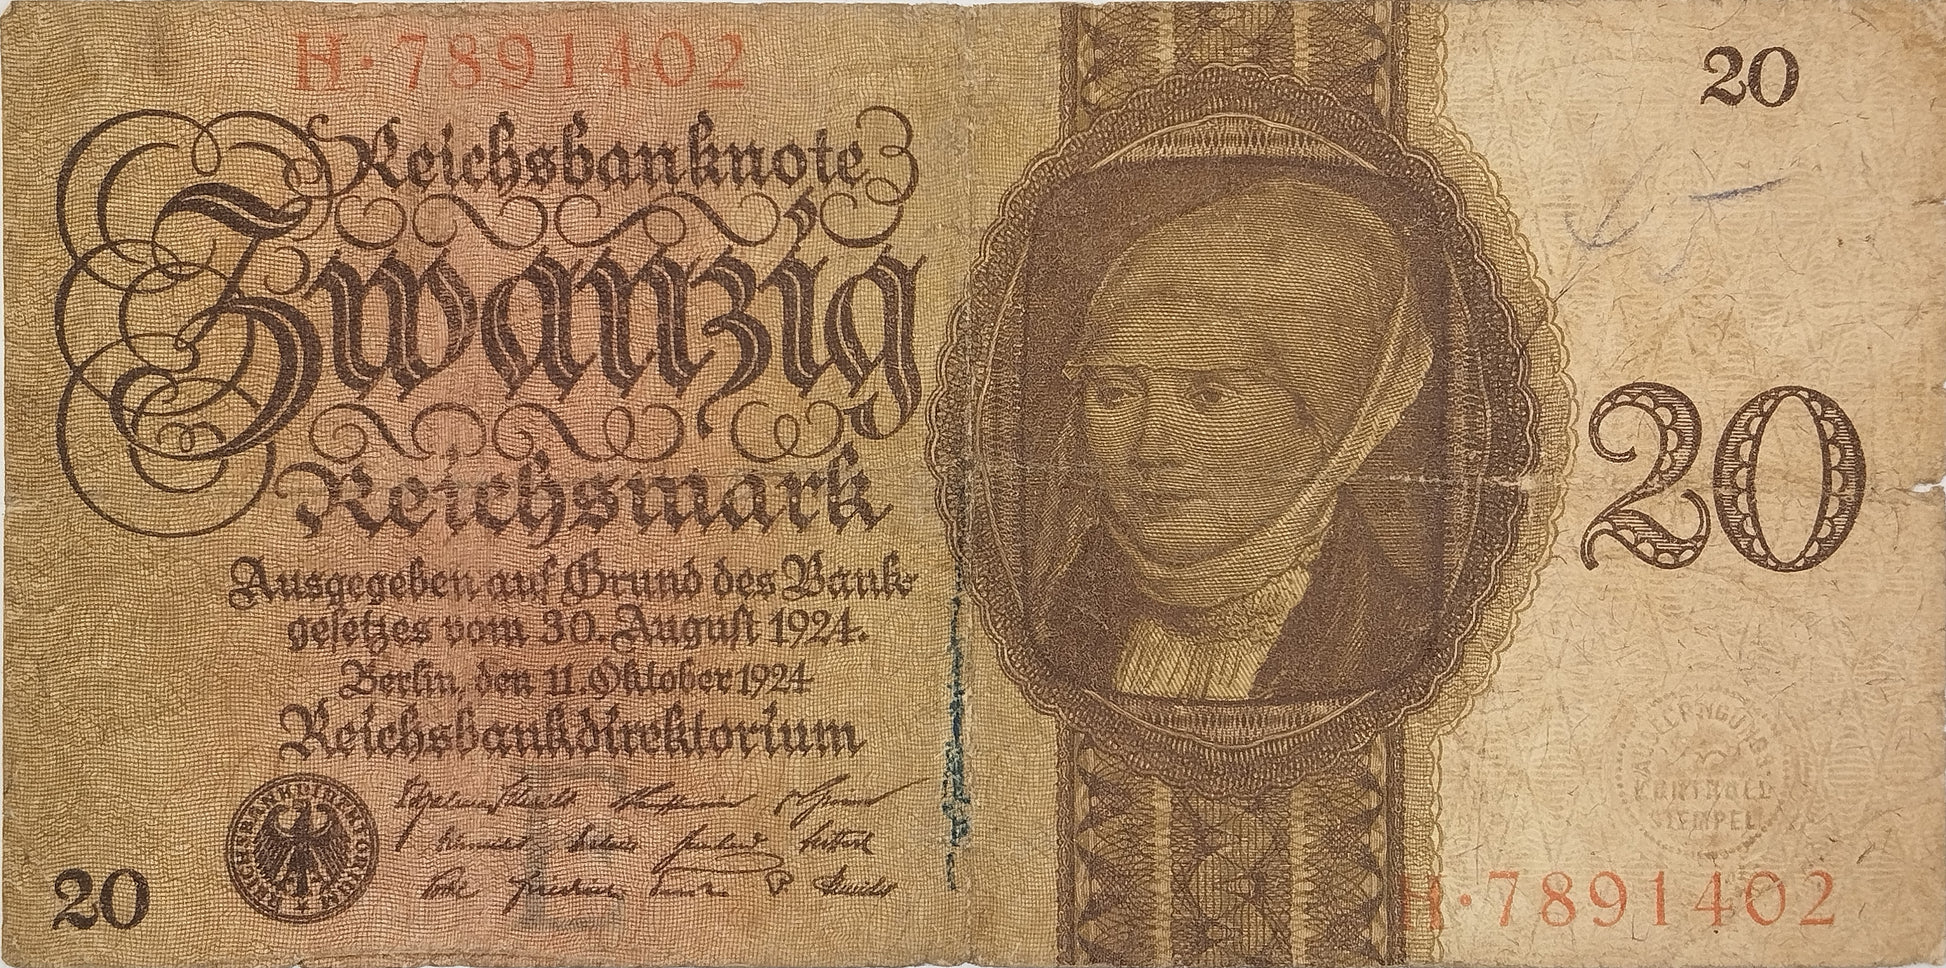 H·7891402
20
Reichsbanknote
Zwanzig
Reichsmark
20
Ausgegeben auf Grund des Bank-
gesetzes vom 30. August 1924.
Berlin, den 11. Oktober 1924
Reichsbankdirektorium
REICHSBANKDIREKTORIUM
E
20
KONTROLL
STEMPEL
H·7891402